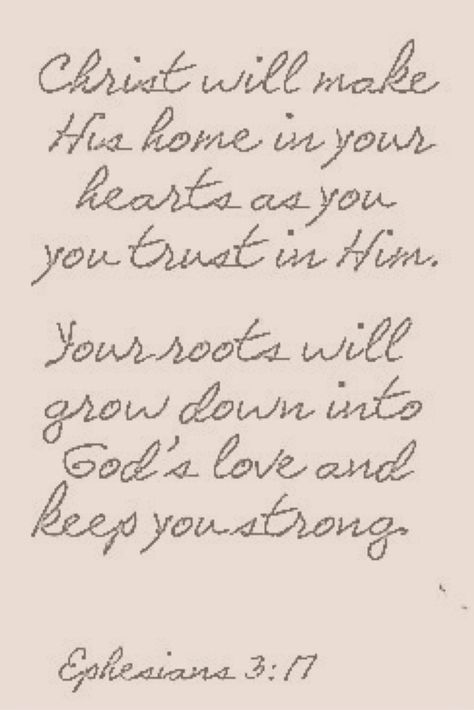 Christ will make
His home in your
hearts as you
you trust in Him.
Your roots will
grow down into
God's love and
keep you strong.
Ephesians 3:17